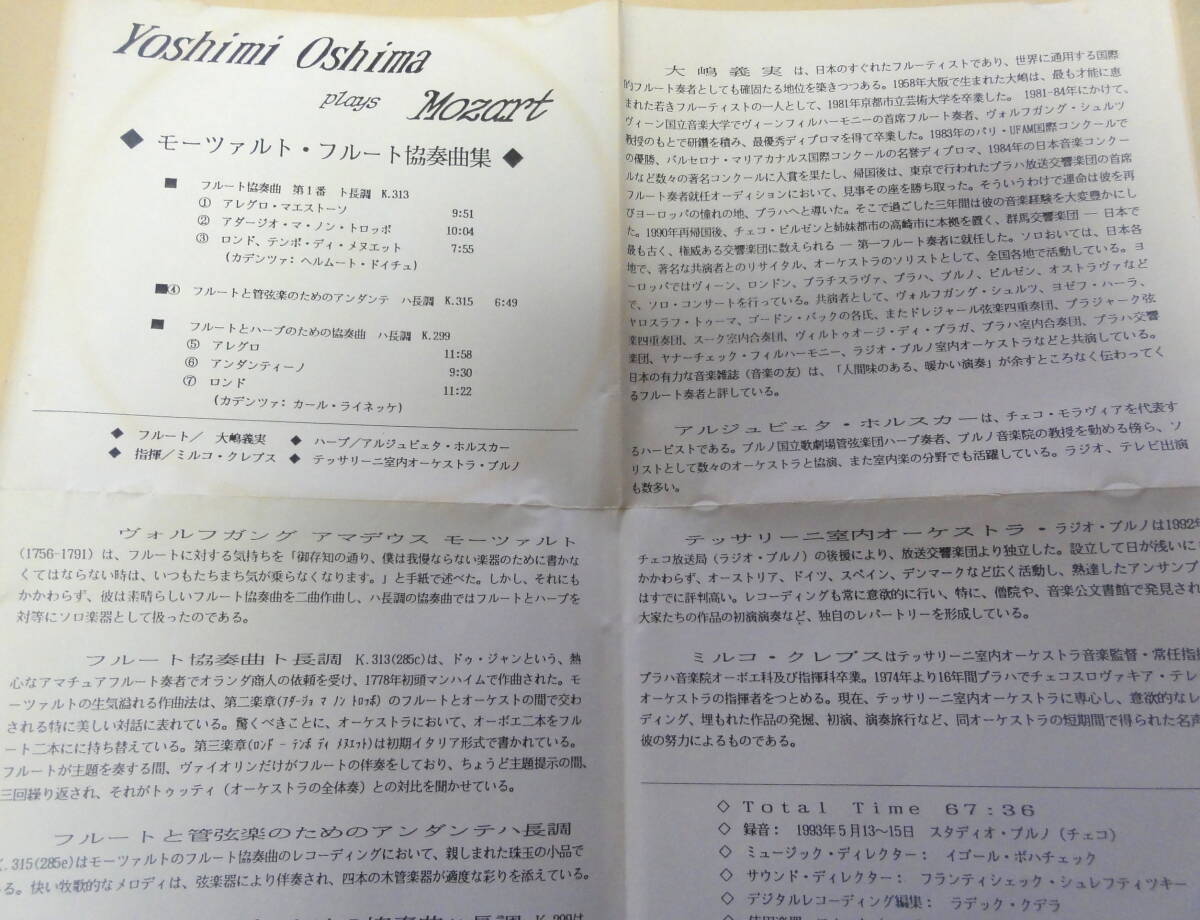 Yoshimi Oshima
plays Mozart
◆ モーツァルト・フルート協奏曲集 ◆
■ フルート協奏曲 第1番 ト長調 K.313
① アレグロ・マエストーソ 9:51
② アダージオ・マ・ノン・トロッポ 10:04
③ ロンド、テンポ・ディ・メヌエット 7:55
(カデンツァ: ヘルムート・ドイチュ)
■④ フルートと管弦楽のためのアンダンテ ハ長調 K.315 6:49
■ フルートとハープのための協奏曲 ハ長調 K.299
⑤ アレグロ 11:58
⑥ アンダンティーノ 9:30
⑦ ロンド 11:22
(カデンツァ: カール・ライネッケ)
◆ フルート/ 大嶋義実 ◆ ハープ/アルジュビェタ・ホルスカー
◆ 指揮/ミルコ・クレプス ◆ テッサリーニ室内オーケストラ・ブルノ
ヴォルフガング アマデウス モーツァルト
(1756-1791)は、フルートに対する気持ちを「御存知の通り、僕は我慢ならない楽器のために書かな
くてはならない時は、いつもたちまち気が乗らなくなります。」と手紙で述べた。しかし、それにも
かかわらず、彼は素晴らしいフルート協奏曲を二曲作曲し、ハ長調の協奏曲ではフルートとハープを
対等にソロ楽器として扱ったのである。
フルート協奏曲ト長調 K.313(285c)は、ドゥ・ジャンという、熱
心なアマチュアフルート奏者でオランダ商人の依頼を受け、1778年初頭マンハイムで作曲された。モ
ーツァルトの生気溢れる作曲法は、第二楽章(ｱﾀﾞｰｼﾞｮ ﾏ ﾉﾝ ﾄﾛｯﾎﾟ)のフルートとオーケストの間で交わ
される特に美しい対話に表れている。驚くべきことに、オーケストラにおいて、オーボエ二本をフル
ート二本にに持ち替えている。第三楽章(ﾛﾝﾄﾞ - ﾃﾝﾎﾟ ﾃﾞｨ ﾒﾇｴｯﾄ)は初期イタリア形式で書かれている。
フルートが主題を奏する間、ヴァイオリンだけがフルートの伴奏をしており、ちょうど主題提示の間、
三回繰り返され、それがトゥッティ(オーケストラの全体奏)との対比を聞かせている。
フルートと管弦楽のためのアンダンテハ長調
K.315(285e)はモーツァルトのフルート協奏曲のレコーディングにおいて、親しまれた珠玉の小品で
る。快い牧歌的なメロディは、弦楽器により伴奏され、四本の木管楽器が適度な彩りを添えている。
協奏曲ハ長調 K.299は
大嶋義実は、日本のすぐれたフルーティストであり、世界に通用する国際
的フルート奏者としても確固たる地位を築きつつある。1958年大阪で生まれた大嶋は、最も才能に恵
まれた若きフルーティストの一人として、1981年京都市立芸術大学を卒業した。 1981-84年にかけて、
ヴィーン国立音楽大学でヴィーンフィルハーモニーの首席フルート奏者、ヴォルフガング・シュルツ
教授のもとで研鑽を積み、最優秀ディプロマを得て卒業した。1983年のパリ・UFAM国際コンクールで
の優勝、バルセロナ・マリアカナルス国際コンクールの名誉ディプロマ、1984年の日本音楽コンクー
ルなど数々の著名コンクールに入賞を果たし、帰国後は、東京で行われたプラハ放送交響楽団の首席
フルート奏者就任オーディションにおいて、見事その座を勝ち取った。そういうわけで運命は彼を再
びヨーロッパの憧れの地、プラハへと導いた。そこで過ごした三年間は彼の音楽経験を大変豊かにし
た。1990年再帰国後、チェコ・ピルゼンと姉妹都市の高崎市に本拠を置く、群馬交響楽団 ― 日本で
最も古く、権威ある交響楽団に数えられる ― 第一フルート奏者に就任した。ソロにおいては、日本各
地で、著名な共演者とのリサイタル、オーケストラのソリストとして、全国各地で活動している。ヨ
ーロッパではヴィーン、ロンドン、ブラチスラヴァ、プラハ、ブルノ、ピルゼン、オストラヴァなど
で、ソロ・コンサートを行っている。共演者として、ヴォルフガング・シュルツ、ヨゼフ・ハーラ、
ヤロスラフ・トゥーマ、ゴードン・バックの各氏、またドレジャール弦楽四重奏団、プラジャーク弦
楽四重奏団、スーク室内合奏団、ヴィルトゥオージ・ディ・プラガ、プラハ室内合奏団、プラハ交響
楽団、ヤナーチェック・フィルハーモニー、ラジオ・ブルノ室内オーケストラなどと共演している。
日本の有力な音楽雑誌(音楽の友)は、「人間味のある、暖かい演奏」が余すところなく伝わってく
るフルート奏者と評している。
アルジュビェタ・ホルスカーは、チェコ・モラヴィアを代表す
るハーピストである。ブルノ国立歌劇場管弦楽団ハープ奏者、ブルノ音楽院の教授を勤める傍ら、ソ
リストとして数々のオーケストラと協演、また室内楽の分野でも活躍している。ラジオ、テレビ出演
も数多い。
テッサリーニ室内オーケストラ・ラジオ・ブルノは1992年
チェコ放送局(ラジオ・ブルノ)の後援により、放送交響楽団より独立した。設立して日が浅いにも
かかわらず、オーストリア、ドイツ、スペイン、デンマークなど広く活動し、熟達したアンサンブ
はすでに評判高い。レコーディングも常に意欲的に行い、特に、僧院や、音楽公文書館で発見され
大家たちの作品の初演演奏など、独自のレパートリーを形成している。
ミルコ・クレプスはテッサリーニ室内オーケストラ音楽監督・常任指揮
プラハ音楽院オーボエ科及び指揮科卒業。1974年より16年間プラハでチェコスロヴァキア・テレ
オーケストラの指揮者をつとめる。現在、テッサリーニ室内オーケストラに専心し、意欲的なレ
ディング、埋もれた作品の発掘、初演、演奏旅行など、同オーケストラの短期間で得られた名声
彼の努力によるものである。
◇ Total Time 67:36
◇ 録音: 1993年5月13~15日 スタディオ・ブルノ(チェコ)
◇ ミュージック・ディレクター: イゴール・ボハチェック
◇ サウンド・ディレクター: フランティシェック・シュレフティツキー
◇ デジタルレコーディング編集: ラデック・クデラ